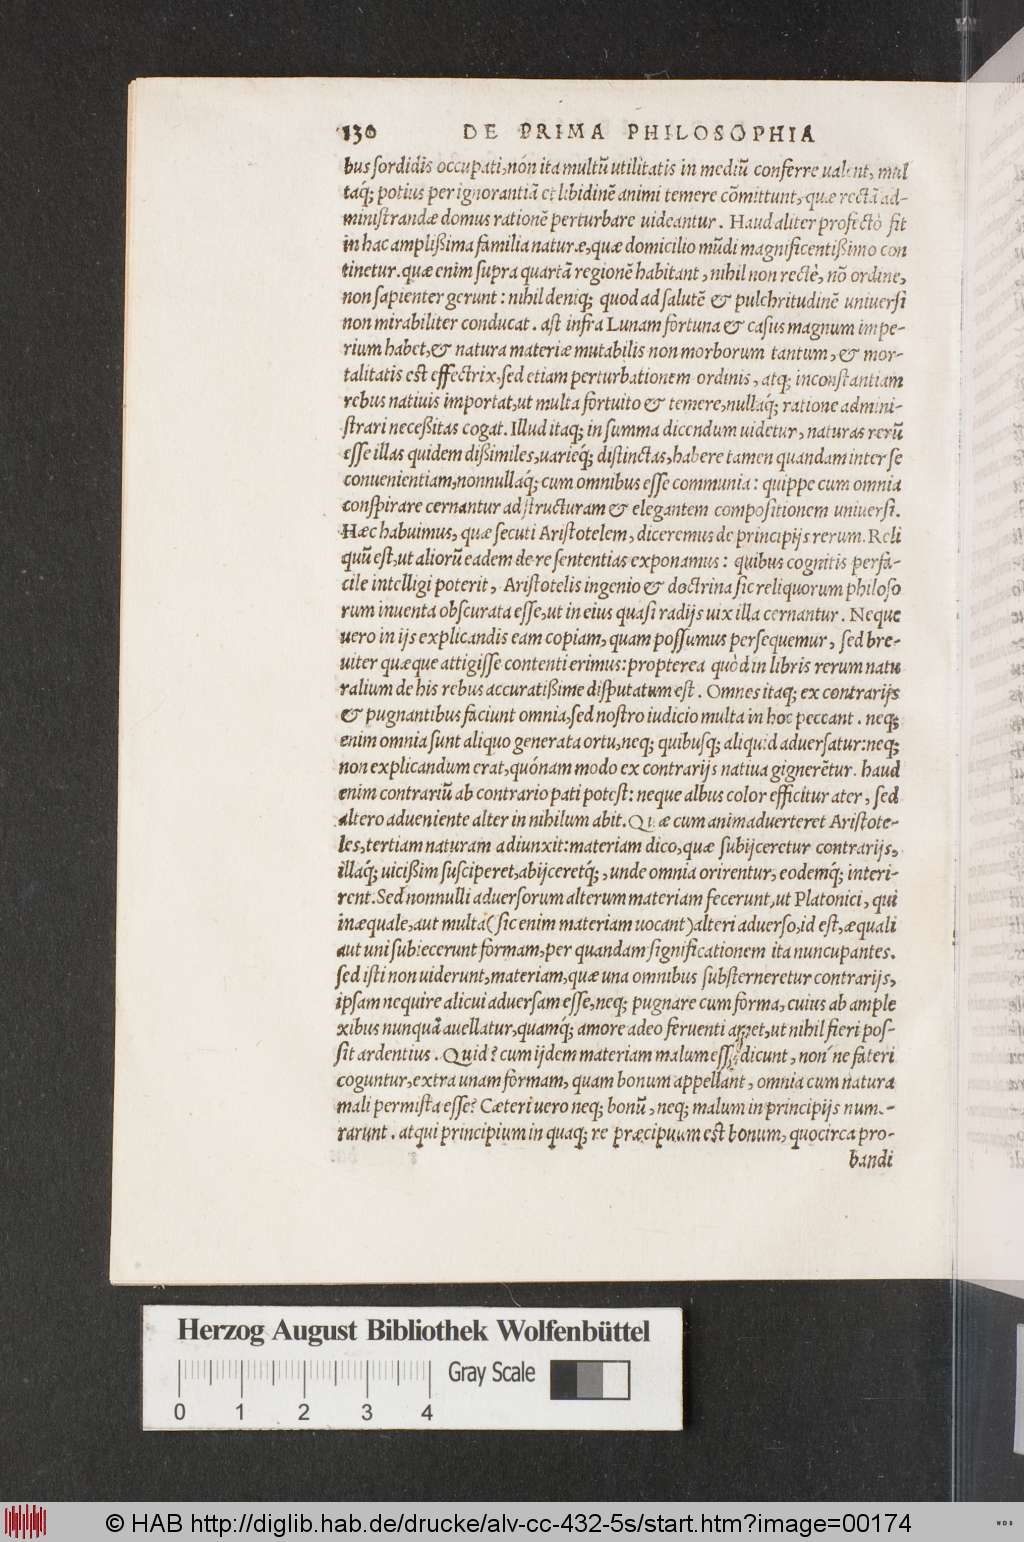 130 DE PRIMA PHILOSOPHIA
bus sordidis occupati, nón ita multũ utilitatis in mediũ conferre ualent, mul
taq́; potius per ignorantiã et libidinẽ animi temere cõmittunt, quæ rectã ad-
ministrandæ domus rationẽ perturbare uideantur. Haud aliter profectò fit
in hac amplißima familia naturæ, quæ domicilio mũdi magnificentißimo con
tinetur. quæ enim supra quartã regionẽ habitant, nihil non rectè, nõ ordine,
non sapienter gerunt: nihil deniq; quod ad salutẽ & pulchritudinẽ uniuersi
non mirabiliter conducat. ast infra Lunam fortuna & casus magnum impe-
rium habet, & natura materiæ mutabilis non morborum tantum, & mor-
talitatis est effectrix, sed etiam perturbationem ordinis, atq; inconstantiam
rebus natiuis importat, ut multa fortuito & temere, nullaq́; ratione admini-
strari neceßitas cogat. Illud itaq; in summa dicendum uidetur, naturas rerũ
esse illas quidem dißimiles, uarieq́; distinctas, habere tamen quandam inter se
conuenientiam, nonnullaq́; cum omnibus esse communia: quippe cum omnia
conspirare cernantur ad structuram & elegantem compositionem uniuersi.
Hæc habuimus, quæ secuti Aristotelem, diceremus de principijs rerum. Reli
quũ est, ut aliorũ eadem de re sententias exponamus: quibus cognitis perfa-
cile intelligi poterit, Aristotelis ingenio & doctrina sic reliquorum philoso
rum inuenta obscurata esse, ut in eius quasi radijs uix illa cernantur. Neque
uero in ijs explicandis eam copiam, quam possumus persequemur, sed bre-
uiter quæque attigisse contenti erimus: propterea quòd in libris rerum natu
ralium de his rebus accuratißime disputatum est. Omnes itaq; ex contrarijs
& pugnantibus faciunt omnia, sed nostro iudicio multa in hoc peccant. neq;
enim omnia sunt aliquo generata ortu, neq; quibusq; aliquid aduersatur: neq;
non explicandum erat, quónam modo ex contrarijs natiua gignerẽtur. haud
enim contrariũ ab contrario pati potest: neque albus color efficitur ater, sed
altero adueniente alter in nihilum abit. Quæ cum animaduerteret Aristote-
les, tertiam naturam adiunxit: materiam dico, quæ subijceretur contrarijs,
illaq́; uicißim susciperet, abijceretq́;, unde omnia orirentur, eodemq́; interi-
rent. Sed nonnulli aduersorum alterum materiam fecerunt, ut Platonici, qui
inæquale, aut multa (sic enim materiam uocant) alteri aduerso, id est, æquali
aut uni subiecerunt formam, per quandam significationem ita nuncupantes.
sed isti non uiderunt, materiam, quæ una omnibus substerneretur contrarijs,
ipsam nequire alicui aduersam esse, neq; pugnare cum forma, cuius ab ample
xibus nunquã auellatur, quamq́; amore adeo feruenti appet, ut nihil fieri pos-
sit ardentius. Quid? cum ijdem materiam malum esse dicunt, non' ne fateri
coguntur, extra unam formam, quam bonum appellant, omnia cum natura
mali permista esse? Cæteri uero neq; bonũ, neq; malum in principijs nume-
rarunt. atqui principium in quaq; re præcipuum est bonum, quocirca pro-
bandi
Herzog August Bibliothek Wolfenbüttel
Gray Scale
0 1 2 3 4
© HAB http://diglib.hab.de/drucke/alv-cc-432-5s/start.htm?image=00174